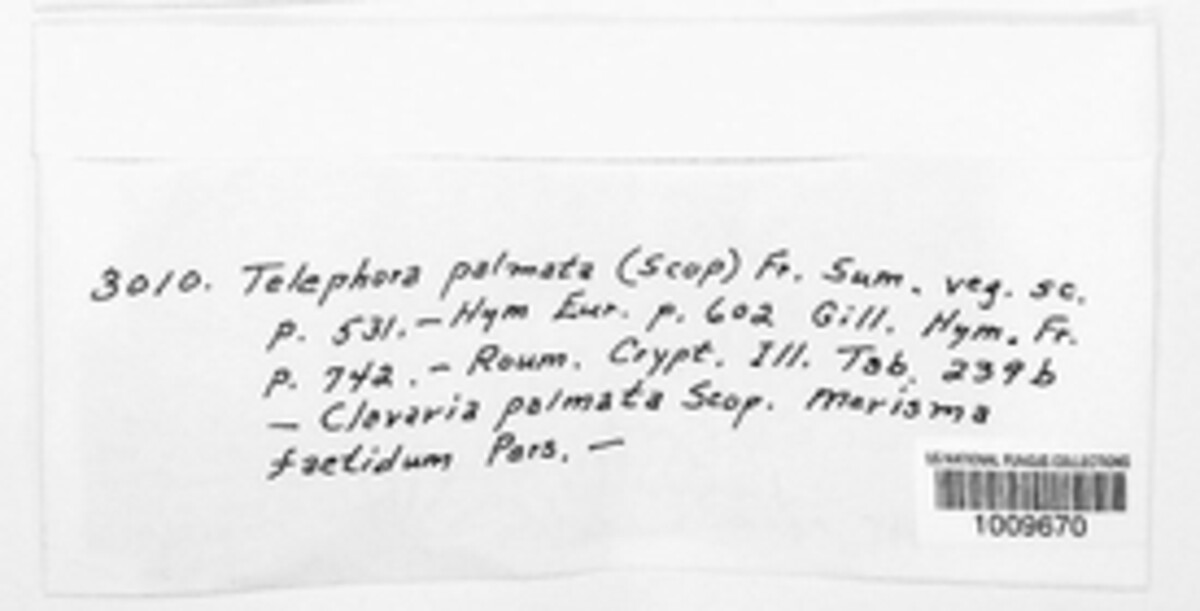 3010. Telephora palmata (Scop) Fr. Sum. veg. sc.
p. 531. — Hym Eur. p. 602 Gill. Hym. Fr.
p. 742. — Roum. Crypt. Ill. Tab. 239b
— Clavaria palmata Scop. Merisma
faetidum Pers. —
US NATIONAL FUNGUS COLLECTIONS
1009670